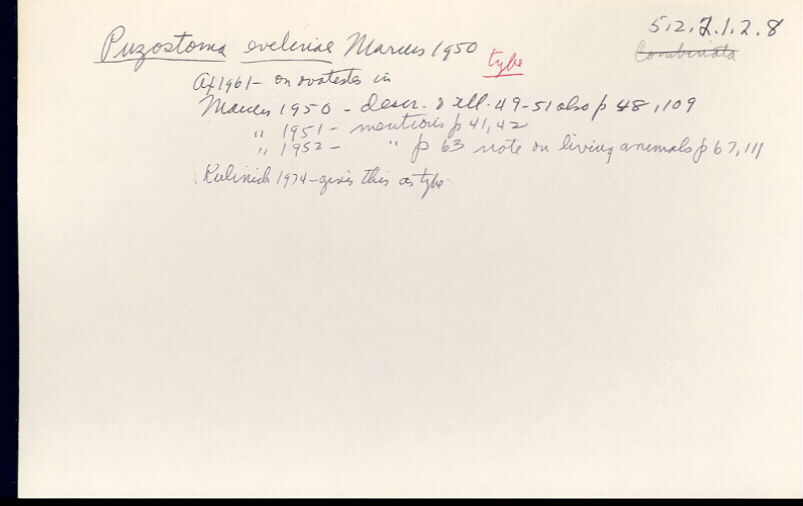 5.2.2.1.2.8
Combinata
Puzostoma evelinae Marcus 1950 type
Ax 1961 - on ovotestes in
Marcus 1950 - descr. & ill. 49-51 also p 48, 109
" 1951 - mentions p 41, 42
" 1952 - " p 63 note on living animals p 67, 111
Kulinich 1974 - gives this as type.